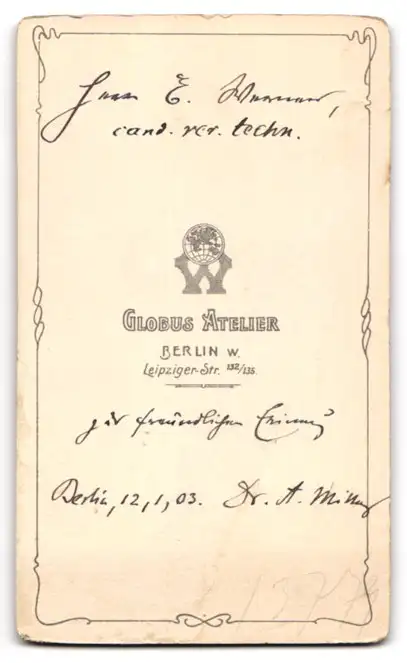 Herrn E. Werner,
cand. rer. techn.
W
GLOBUS ATELIER
BERLIN W.
Leipziger-Str. 132/135
zur freundlichen
Berlin, 12,1,03. Dr. A.